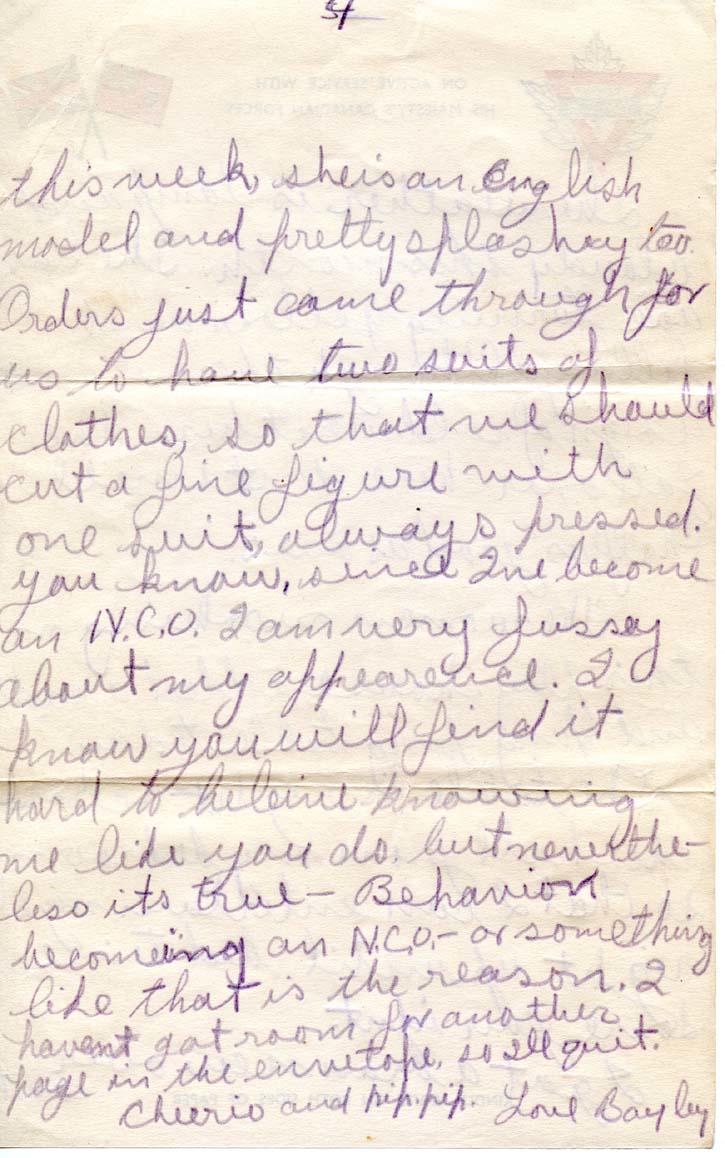 this week, she is an English
model and pretty splashey too.
Orders just came through for
us to have two suits of
clothes, so that we should
cut a fine figure with
one suit, always pressed.
you know, since I've become
an N.C.O. I am very fussey
about my appearence. I
know you will find it
hard to beleive knowing
me like you do. but neverthe-
less its true – Behavior
becomeing an N.C.O. – or something
like that is the reason. I
havent got room for another
page in the envelope, so I'll quit.
Cheerio and pip. pip. Love Bayley
ON ACTIVE SERVICE WITH
HIS MAJESTY'S CANADIAN FORCES